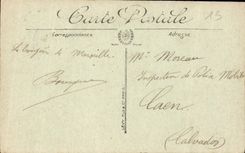 Carte Postale
Correspondance
Adresse
15
de Marseille
Mr Moreau
Inspecteur de Police Mobile
Caen
(Calvados)